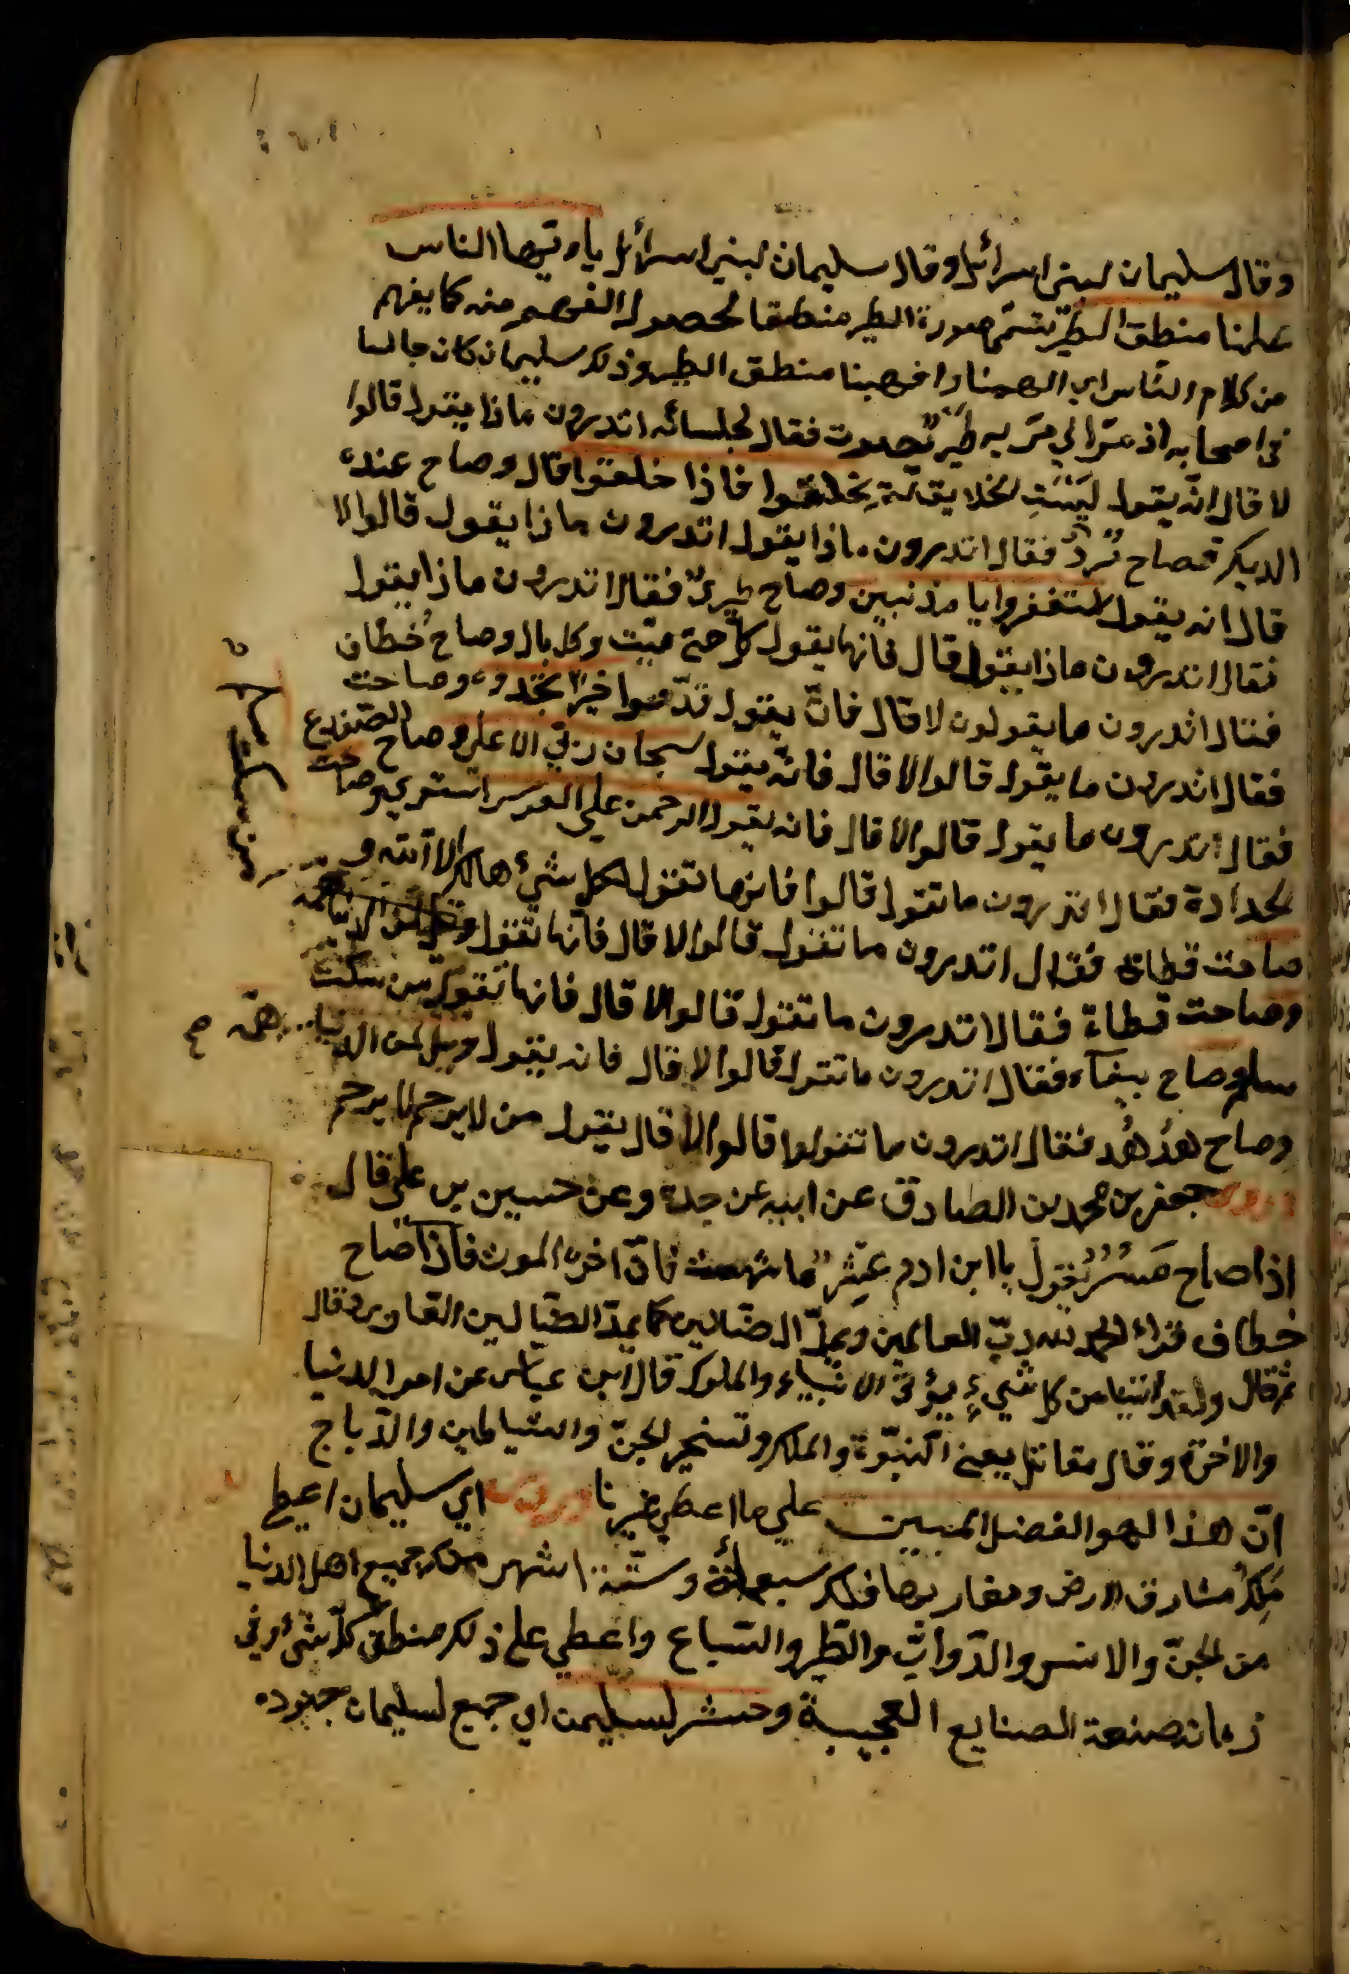 وقال سليمان لبني اسرائل وقال سليمان لبني اسرائل يا ايها الناس
علمنا منطق الطير سمي صورة الطير منطقا لحصول الفهم منه كما يفهم
من كلام الناس اي الهمنا وافهمنا منطق الطير وذلك سليمان كان جالسا
في اصحابه اذ مر به طير يصوت فقال لجلسائه اتدرون ماذا يقول قالوا
لا قال انه يقول ليت الخلايق لم يخلقوا فاذا خلقوا قال وصاح عنده
الديك فصاح فقال اتدرون ماذا يقول اتدرون ماذا يقول قالوا لا
قال انه يقول استغفروا يا مذنبين وصاح طير فقال اتدرون ماذا يقول
فقال اتدرون ماذا يقول قال فانها يقول كل حي ميت وكل بال وصاح خطاف
فقال اتدرون ما يقولون لا قال فان يقول قدموا خيرا تجدوه وصاحت
فقال اتدرون ما يقول قالوا لا قال فانه يقول سبحان ربي الاعلى وصاح الضفدع
فقال اتدرون ما يقول قالوا لا قال فانه يقول الرحمن على العرش استوى وصاحت
لحدادة فقال اتدرون ما تقول قالوا فانها تقول كل شيء هالك الا الله و
صاحت قطاة فقال اتدرون ما تقول قالوا لا قال فانها تقول
وصاحت قطاة فقال اتدرون ما تقول قالوا لا قال فانها تقول من سكت
سلم وصاح ببغاء فقال اتدرون ما تقول قالوا لا قال فانه يقول ويل لمن الدنيا همه
وصاح هدهد فقال اتدرون ما تقولوا قالوا لا قال يقول من لا يرحم لا يرحم
وروي جعفر بن محمد بن الصادق عن ابيه عن جده وعن حسين بن علي قال
اذا صاح نسر يقول يا ابن ادم عش ما شئت فان اخره الموت فاذا صاح
خطاف قراء الحمد لله رب العالمين ويمد الضالين كما يمد الضالين القاري وقال
ثم قال ولقد اتينا من كل شيء يؤتى الانبياء والملوك قال ابن عباس عن امر الدنيا
والاخرة وقال مقاتل يعني النبوة والملك وتسخير الجن والشياطين والرياح
ان هذا لهو الفضل المبين على ما اعطى غيرنا وروي اي سليمان اعطي
ملك مشارق الارض ومغاربها فملك سبعمائة وستة اشهر ملك جميع اهل الدنيا
من الجن والانس والدواب والطير والسباع واعطي على ذلك منطق كل شيء وفي
زمانه صنعة الصنايع العجيبة وحشر لسليمن اي جمع لسليمان جنوده
من سكت سلم